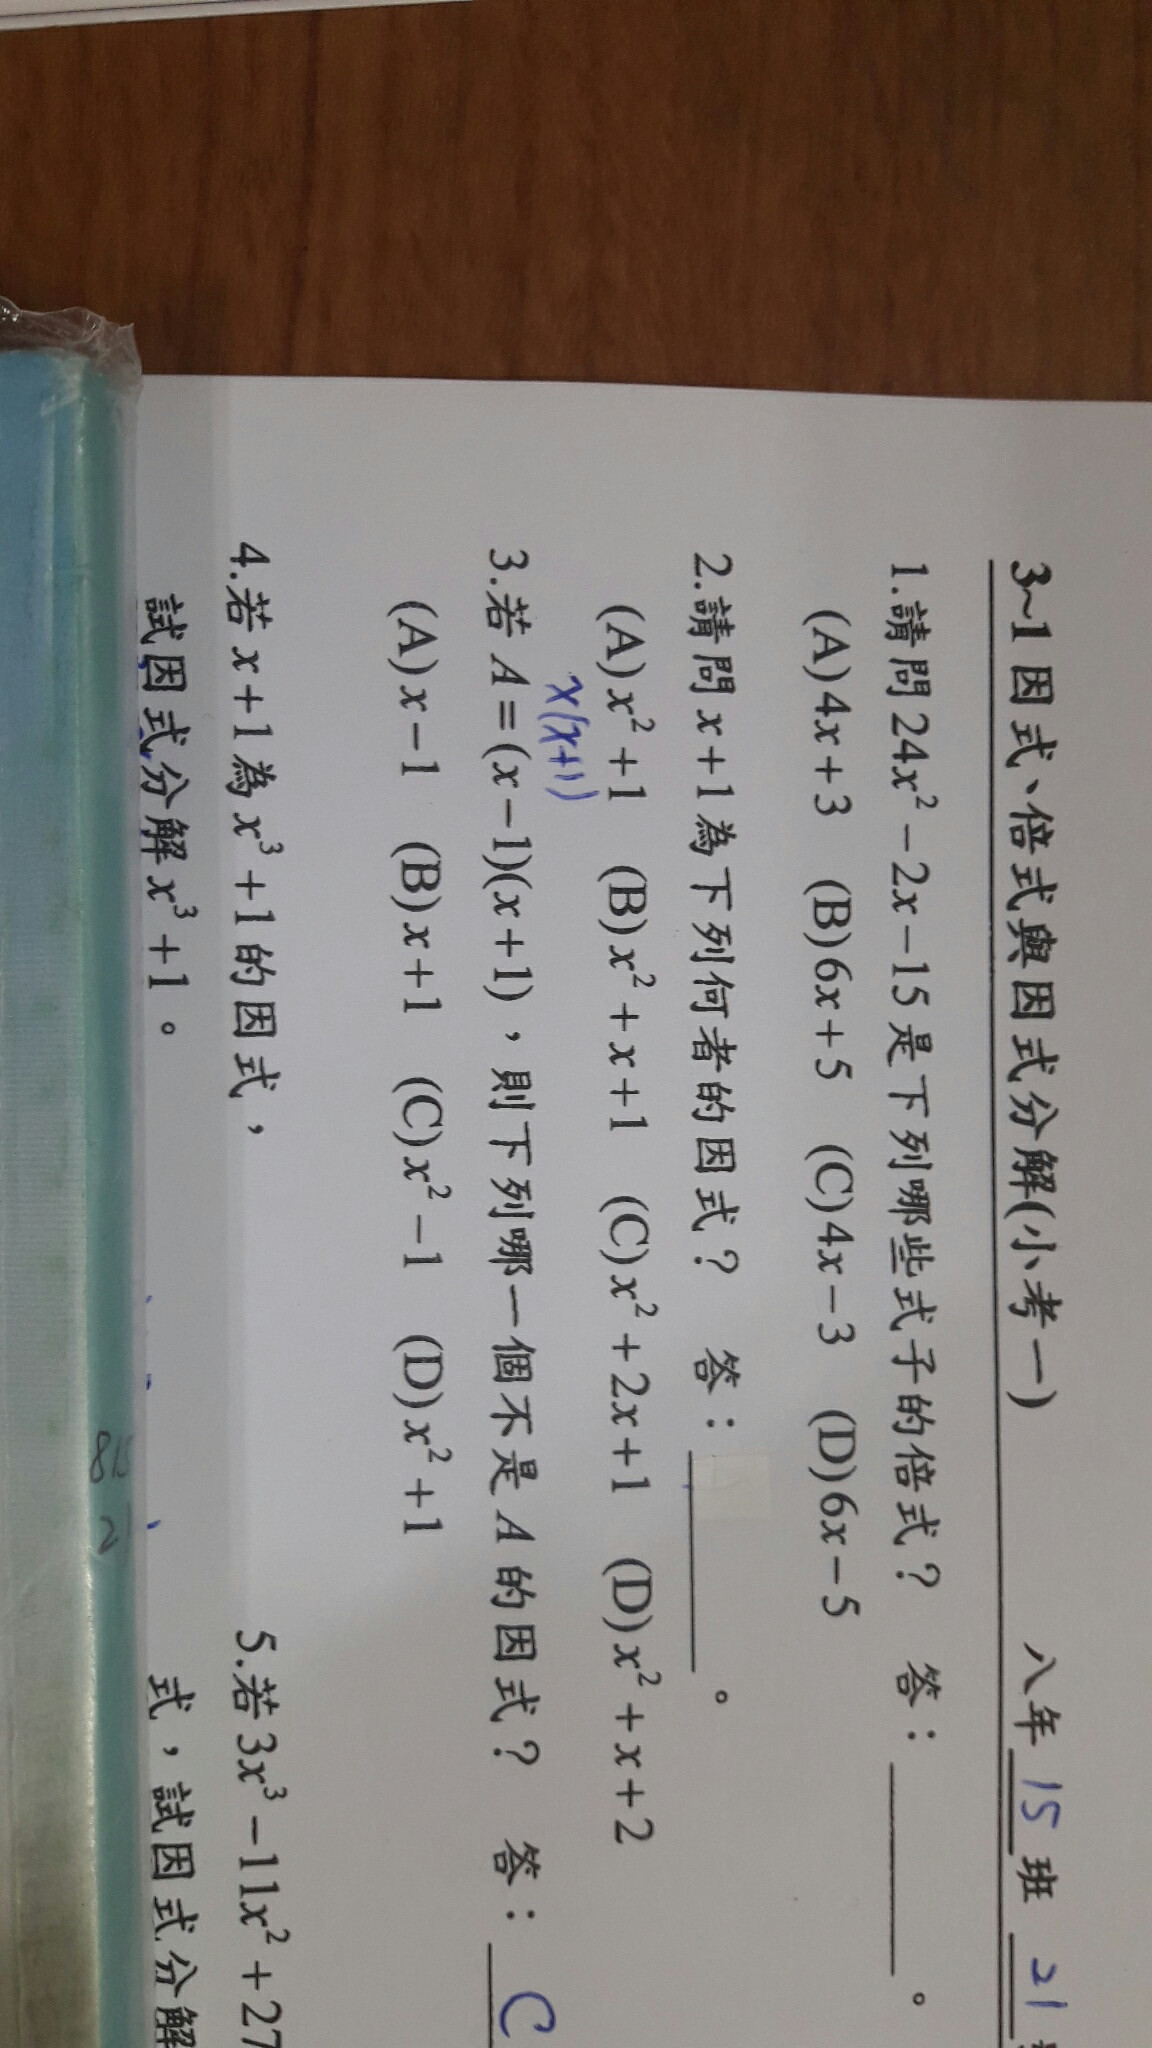 3~1 因式、倍式與因式分解(小考一) 八年 15 班 21
1.請問 24x² − 2x − 15 是下列哪些式子的倍式？ 答：________。
(A) 4x + 3 (B) 6x + 5 (C) 4x − 3 (D) 6x − 5
2.請問 x + 1 為下列何者的因式？ 答：________。
(A) x² + 1 (B) x² + x + 1 (C) x² + 2x + 1 (D) x² + x + 2
x(x+1)
3.若 A = (x − 1)(x + 1)，則下列哪一個不是 A 的因式？ 答：C
(A) x − 1 (B) x + 1 (C) x² − 1 (D) x² + 1
4.若 x + 1 為 x³ + 1 的因式，
試因式分解 x³ + 1。
5.若 3x³ − 11x² + 27
式，試因式分解